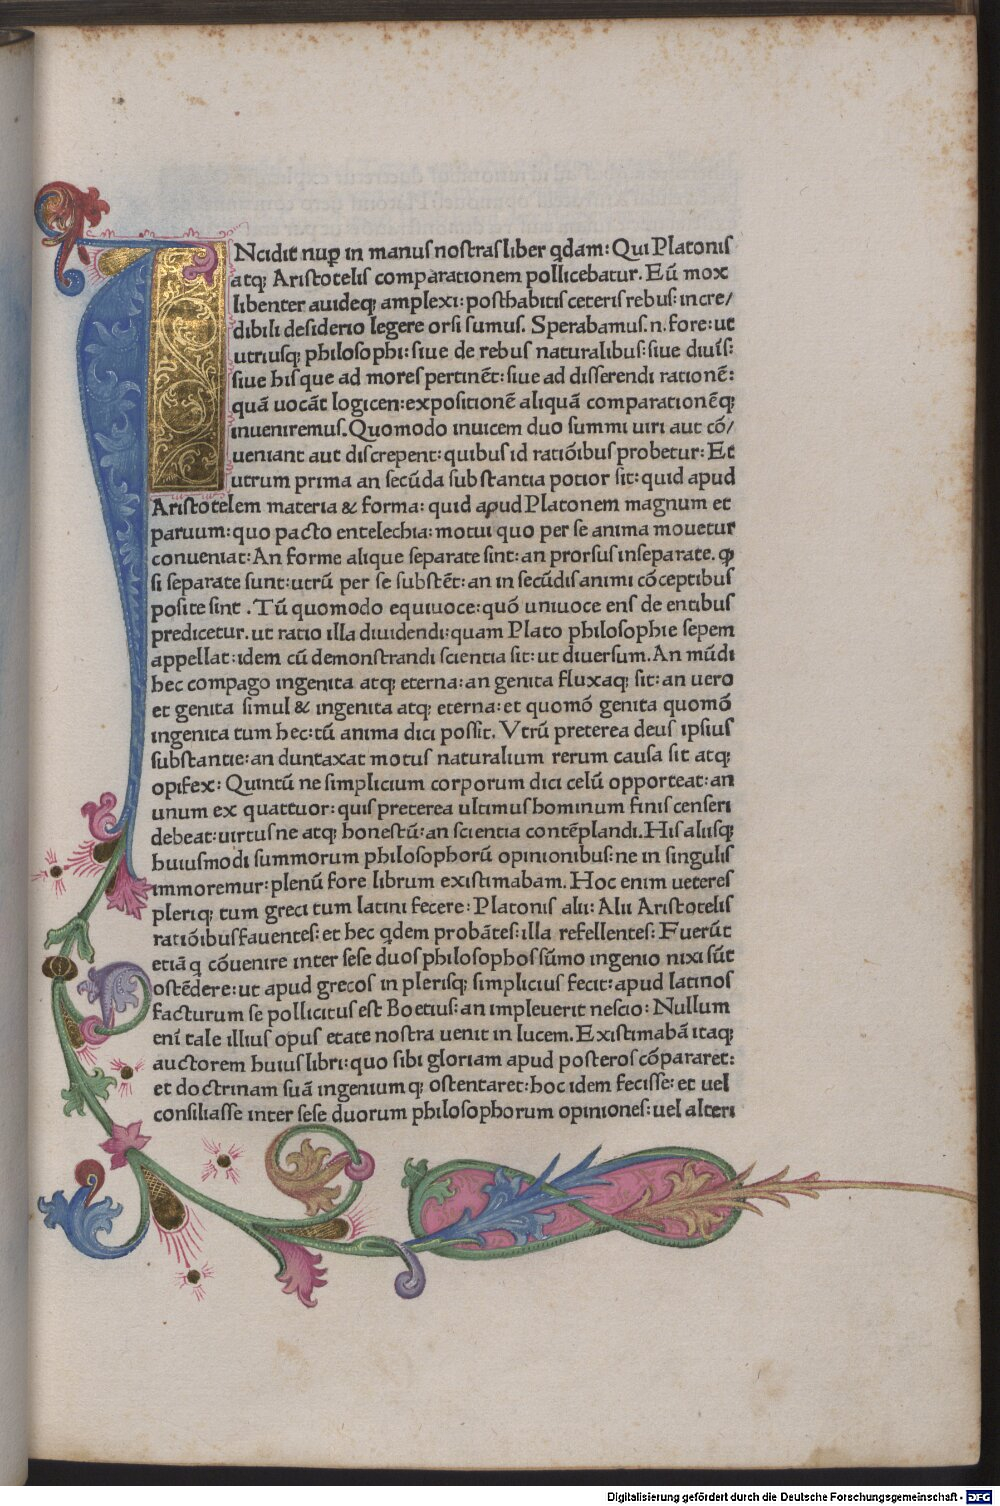 INcidit nuꝑ in manus nostras liber q̄dam: Qui Platonis
atq; Aristotelis comparationem pollicebatur. Eū mox
libenter auideq; amplexi: posthabitis ceteris rebus: incre/
dibili desiderio legere orsi sumus. Sperabamus.n.fore: ut
utriusq; philosophi: siue de rebus naturalibus: siue diuīs:
siue his que ad mores pertinēt: siue ad disserendi rationē:
quā uocāt logicen: expositionē aliquā comparationēq;
inueniremus. Quomodo inuicem duo summi uiri aut cō/
ueniant aut discrepent: quibus id ratiōibus probetur: Et
utrum prima an secūda substantia potior sit: quid apud
Aristotelem materia & forma: quid apud Platonem magnum et
paruum: quo pacto entelechia: motui quo per se anima mouetur
conueniat: An forme alique separate sint: an prorsus inseparate. ꝙ
si separate sunt: utrū per se substēt: an in secūdis animi cōceptibus
posite sint. Tū quomodo equiuoce: quō uniuoce ens de entibus
predicetur. ut ratio illa diuidendi: quam Plato philosophie sepem
appellat: idem cū demonstrandi scientia sit: ut diuersum. An mūdi
hec compago ingenita atq; eterna: an genita fluxaq; sit: an uero
et genita simul & ingenita atq; eterna: et quomō genita quomō
ingenita tum hec: tū anima dici possit. Vtrū preterea deus ipsius
substantie: an duntaxat motus naturalium rerum causa sit atq;
opifex: Quintū ne simplicium corporum dici celū opporteat: an
unum ex quattuor: quis preterea ultimus hominum finis censeri
debeat: uirtus ne atq; honestū: an scientia contēplandi. His aliisq;
huiusmodi summorum philosophorū opinionibus: ne in singulis
immoremur: plenū fore librum existimabam. Hoc enim ueteres
pleriq; tum greci tum latini fecere: Platonis alii: Alii Aristotelis
ratiōibus fauentes: et hec q̄dem probātes: illa refellentes: Fuerūt
etiā q cōuenire inter sese duos philosophos sūmo ingenio nixi sūt
ostēdere: ut apud grecos in plerisq; simplicius fecit: apud latinos
facturum se pollicitus est Boetius: an impleuerit nescio: Nullum
enī tale illius opus etate nostra uenit in lucem. Existimabā itaq;
auctorem huius libri: quo sibi gloriam apud posteros cōpararet:
et doctrinam suā ingeniumq; ostentaret: hoc idem fecisse: et uel
consiliasse inter sese duorum philosophorum opiniones: uel alteri
Digitalisierung gefördert durch die Deutsche Forschungsgemeinschaft - DFG